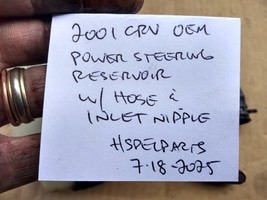 2001 CRV OEM
POWER STEERING
RESERVOIR
W/ HOSE &
INLET NIPPLE
HSPELPARTS
7-18-2025